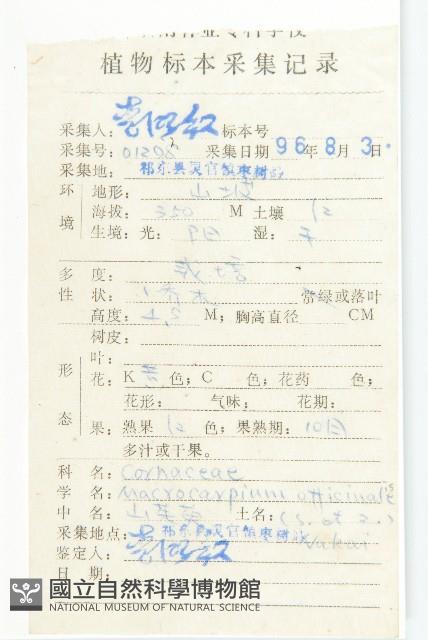 林业专科学校
植物标本采集记录
采集人: 标本号
采集号: 01202 采集日期 96年8月3日
采集地: 祁东县灵官镇枣树
环境 地形: 山坡
海拔: 350 M 土壤 红
生境: 光: 阳 湿: 干
多度: 栽培
性状: 小乔木 常绿或落叶
高度: M; 胸高直径 CM
树皮:
形态 叶:
花: K 黄 色; C 色; 花药 色;
花形: 气味: 花期:
果: 熟果 红 色; 果熟期: 10月
多汁或干果。
科名: Cornaceae
学名: Macrocarpium officinalis
中名: 山茱萸 土名: (S. et Z.) Nakai
采集地点: 祁东县灵官镇枣树
鉴定人:
日期:
國立自然科學博物館
NATIONAL MUSEUM OF NATURAL SCIENCE